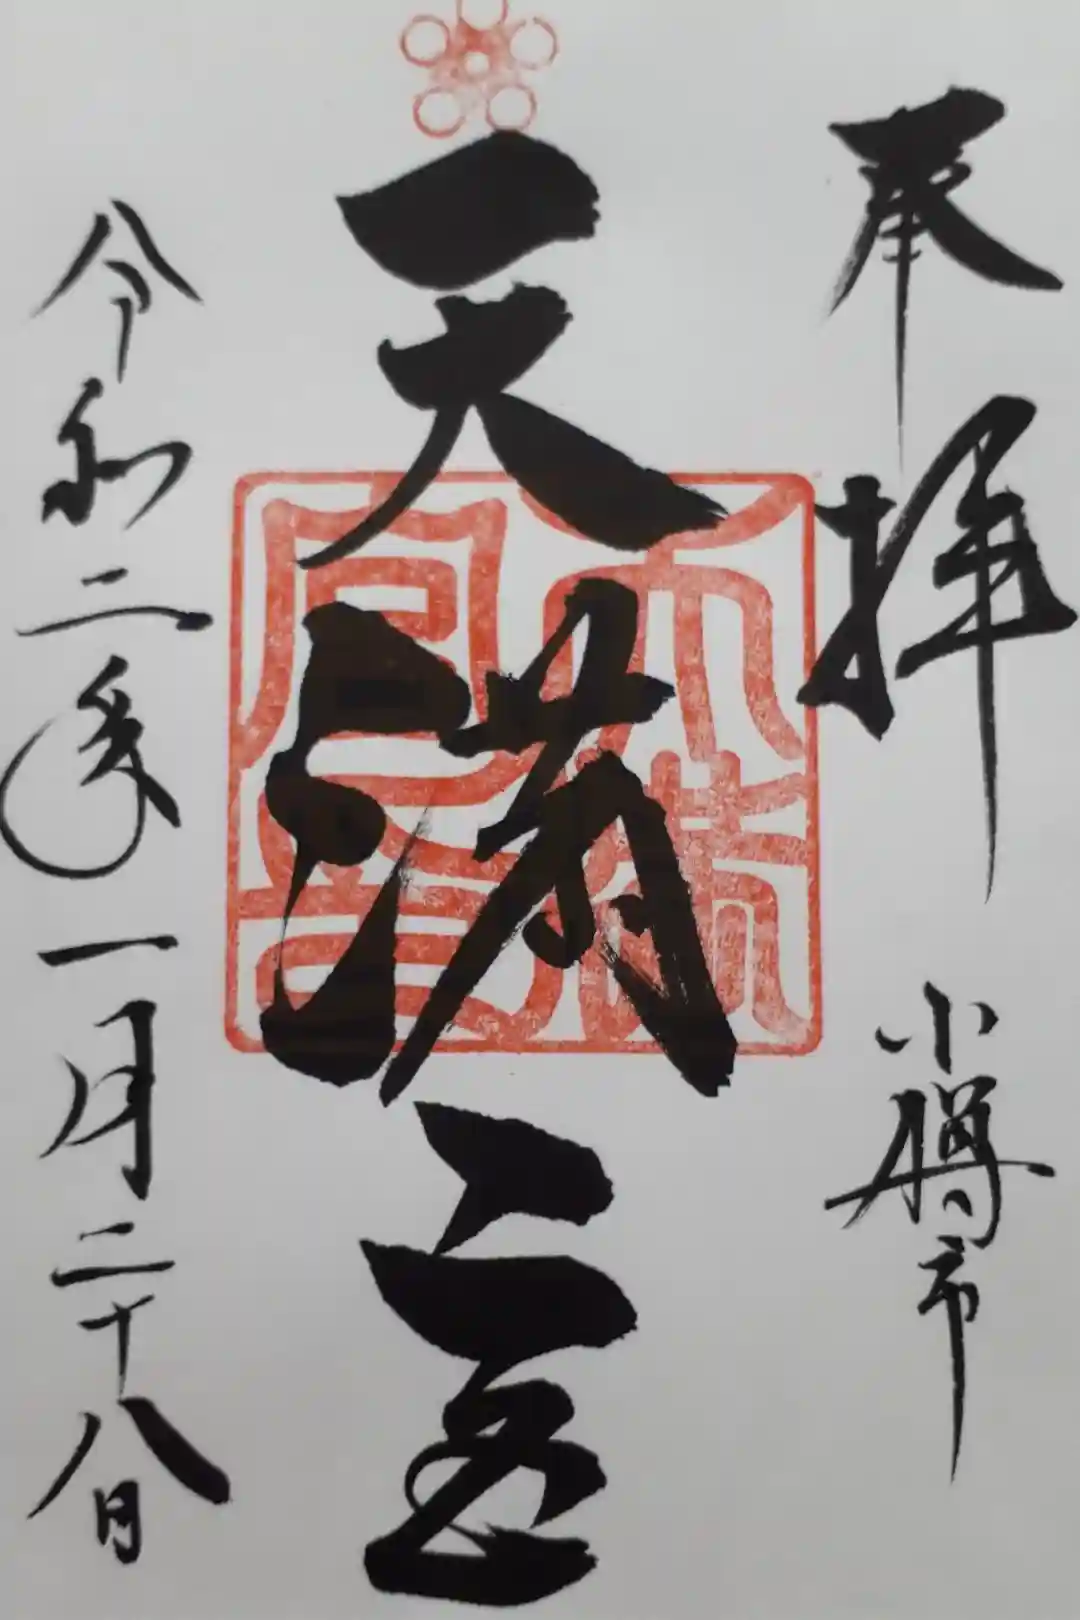 奉拝 小樽市
天満宮
令和二年一月二十八日